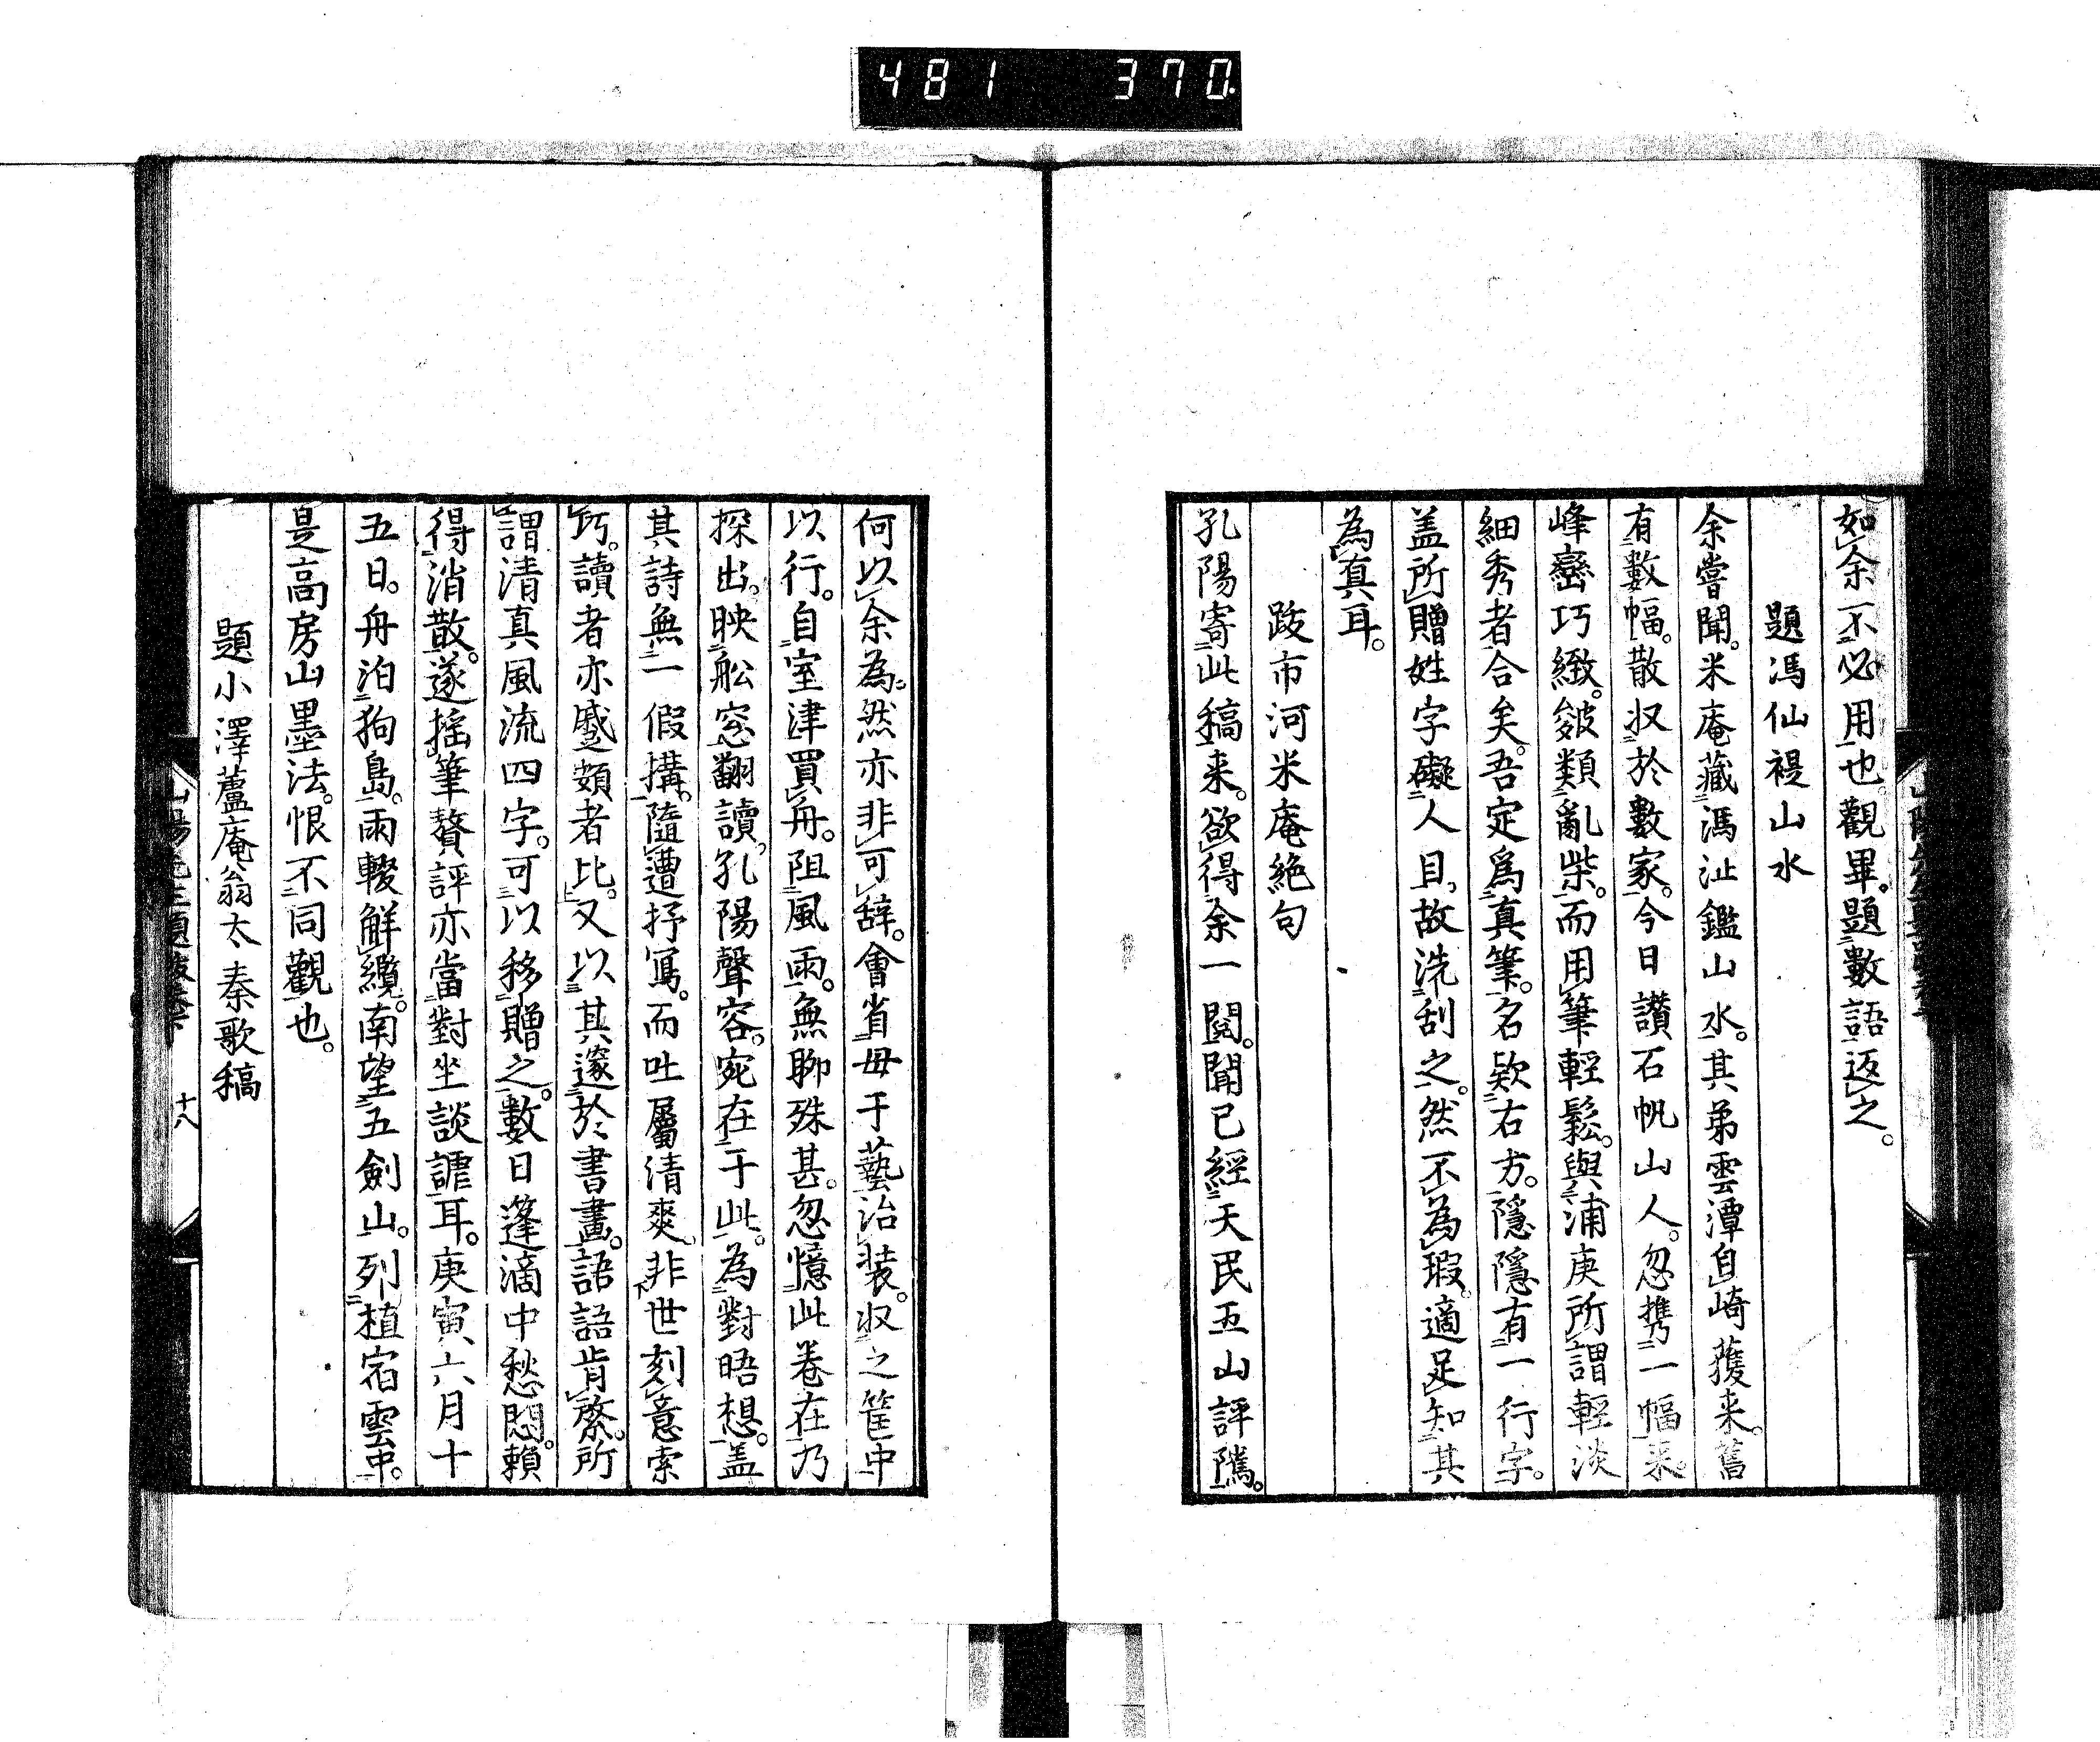 481 370
如余不必用也。觀畢。題數語返之。
題馮仙禔山水
余嘗聞。米庵藏馮沚鑑山水。其弟雲潭自崎獲来。舊
有數幅。散収於數家。今日讚石帆山人。忽携一幅来。
峰巒巧緻。皴類亂柴。而用筆輕鬆。與浦庚所謂輕淡
細秀者合矣。吾定爲真筆。名欵右方。隱隱有一行字。
盖所贈姓字礙人目。故洗刮之。然不為瑕。適足知其
為真耳。
跋市河米庵絶句
孔陽寄此稿来。欲得余一閲。聞已經天民五山評隲。
何以余為。然亦非可辞。會省毋于藝治装。収之筐中
以行。自室津買舟。阻風雨。無聊殊甚。忽憶此卷在乃
探出。映舩窓翻讀。孔陽聲容。宛在于此。為對晤想。盖
其詩無一假搆。隨遭抒寫。而吐屬清爽。非世刻意索
巧。讀者亦蹙頞者比。又以其邃於書畫。語語肯綮。所
謂清真風流四字。可以移贈之。數日篷滴中愁悶。賴
得消散。遂搖筆贅評亦當對坐談謔耳。庚寅六月十
五日。舟泊狗島。雨輟解纜。南望五劍山。列植宿雲中。
是高房山墨法。恨不同觀也。
題小澤蘆庵翁太秦歌稿
山陽先生題跋卷下 十八